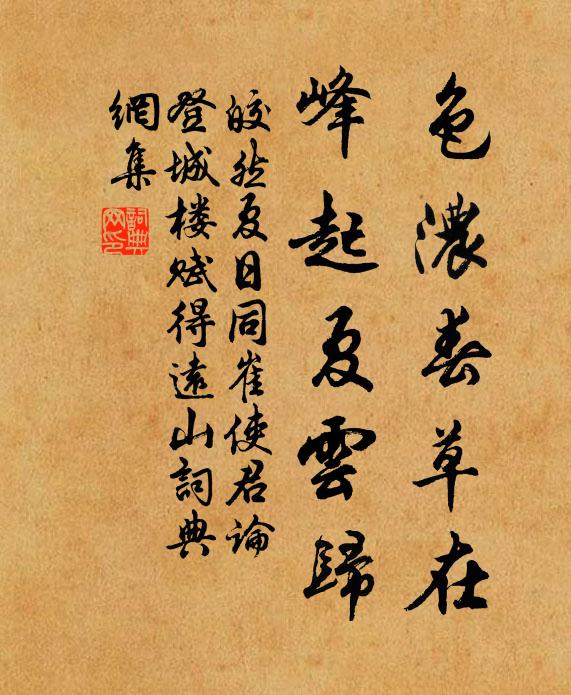 色濃春草在
峰起夏雲歸
皎然夏日同崔使君論
登城楼赋得遠山詞典
網集
詞典
网印